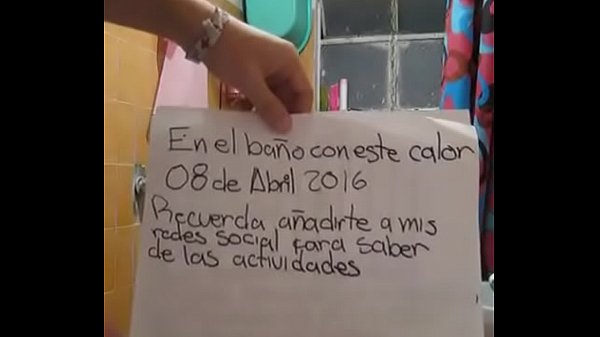 En el baño con este calor
08 de Abril 2016
Recuerda añadirte a mis
redes social para saber
de las actividades